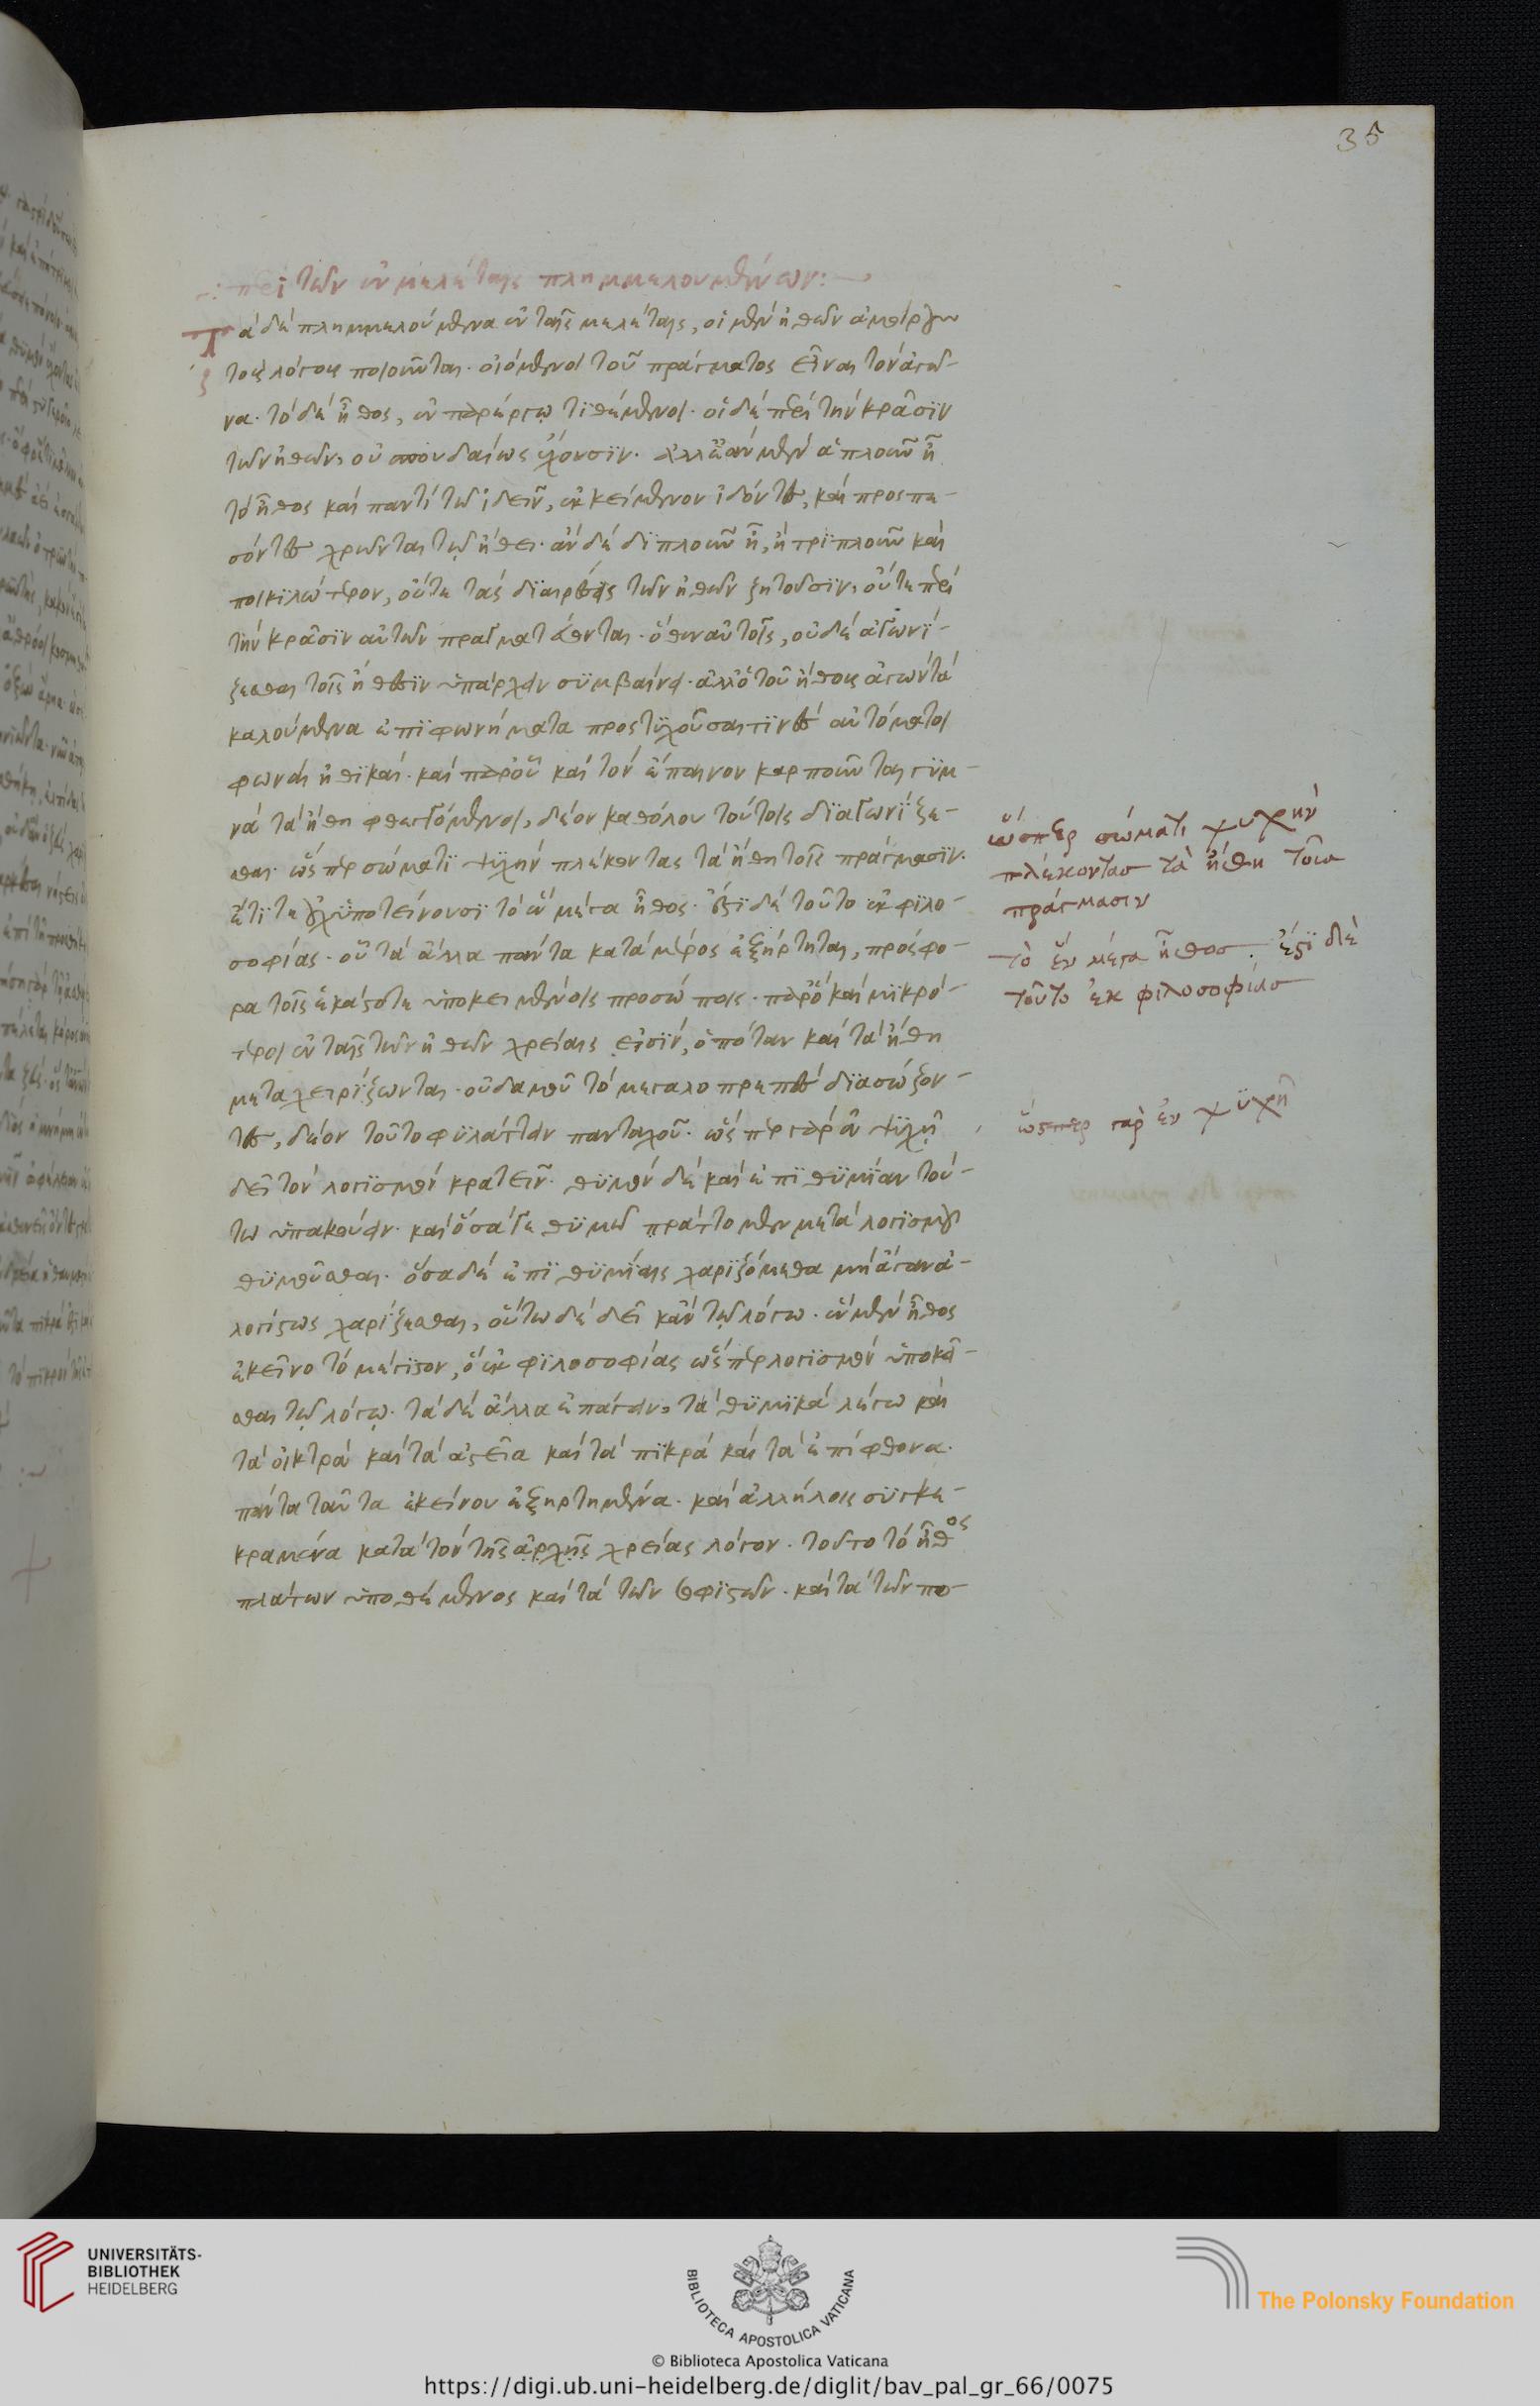 35
περὶ τῶν ἐν μελέταις πλημμελουμένων:
Τὰ δὲ πλημμελούμενα ἐν ταῖς μελέταις, οἱ μὲν ἠθῶν ἀμοίρους
τοὺς λόγους ποιοῦνται. οἰόμενοι τοῦ πράγματος εἶναι τὸν ἀγῶ-
να. τὸ δὲ ἦθος, ἐν παρέργῳ τιθέμενοι. οἱ δὲ περὶ τὴν κρᾶσιν
τῶν ἠθῶν, οὐ σπουδαίως ἔχουσιν. ἀλλ' ἐὰν μὲν ἁπλοῦν ᾖ
τὸ ἦθος καὶ παντὶ τῳ ἰδεῖν, ἐκκείμενον ἰδόντες, καὶ προσπε-
σόντες χρῶνται τῷ ἤθει. ἂν δὲ διπλοῦν ᾖ, ἢ τριπλοῦν καὶ
ποικιλώτερον, οὔτε τὰς διαιρέσεις τῶν ἠθῶν ζητοῦσιν, οὔτε περὶ
τὴν κρᾶσιν αὐτῶν πραγματεύονται. ὅθεν αὐτοῖς, οὐδὲ ἀγωνί-
ζεσθαι τοῖς ἤθεσιν ὑπάρχειν συμβαίνει. ἀλλ' ὁ τοῦ ἤθους ἀγὼν τὰ
καλούμενα ἐπιφωνήματα προστυχοῦσαι τινὲς αὐτόματοι
φωναὶ ἠθικαί. καὶ παρ' οὗ καὶ τὸν ἔπαινον καρποῦνται γυμ-
νὰ τὰ ἤθη φθεγγόμενοι, δέον καθόλου τούτοις διαγωνίζε-
σθαι. ὥσπερ σώματι ψυχὴν πλέκοντας τὰ ἤθη τοῖς πράγμασιν.
ἔτι τε οὐχ ὑποτείνουσι τὸ ἓν μέγα ἦθος. ἔστι δὲ τοῦτο ἐκ φιλο-
σοφίας. οὗ τὰ ἄλλα πάντα κατὰ μέρος ἐξήρτηται, πρόσφο-
ρα τοῖς ἑκάστοτε ὑποκειμένοις προσώποις. παρ' ὃ καὶ μικρό-
τεροι ἐν ταῖς τῶν ἠθῶν χρείαις εἰσίν, ὁπόταν καὶ τὰ ἤθη
μεταχειρίζωνται. οὐδαμοῦ τὸ μεγαλοπρεπὲς διασώζον-
τες, δέον τοῦτο φυλάττειν πανταχοῦ. ὥσπερ γὰρ ἐν ψυχῇ
δεῖ τὸν λογισμὸν κρατεῖν. θυμὸν δὲ καὶ ἐπιθυμίαν τού-
τω ὑπακούειν. καὶ ὅσα γε θυμῷ πράττομεν μετὰ λογισμοῦ
θυμοῦσθαι. ὅσα δὲ ἐπιθυμίαις χαριζόμεθα μὴ ἄγαν ἀ-
λογίστως χαρίζεσθαι, οὕτω δὲ δεῖ κἀν τῷ λόγω. ἓν μὲν ἦθος
ἐκεῖνο τὸ μέγιστον, ὃ ἐκ φιλοσοφίας ὥσπερ λογισμὸν ὑποκεῖ-
σθαι τῷ λόγῳ. τὰ δὲ ἄλλα ἐπάγειν, τὰ θυμικὰ λέγω καὶ
τὰ οἰκτρὰ καὶ τὰ ἀστεῖα καὶ τὰ πικρὰ καὶ τὰ ἐπίφθονα.
πάντα ταῦτα ἐκείνου ἐξηρτημένα. καὶ ἀλλήλοις συγκε-
κραμένα κατὰ τὸν τῆς ἀρχῆς χρείας λόγον. τοῦτο τὸ ἦθος
πλάτων ὑποθέμενος καὶ τὰ τῶν σοφιστῶν. καὶ τὰ τῶν πο-
ὥσπερ σώματι ψυχὴν
πλέκοντασ τὰ ἤθη τοῖσ
πράγμασιν
τὸ ἓν μέγα ἦθοσ. ἔστι δὲ
τοῦτο ἐκ φιλοσοφίασ
ὥσπερ γὰρ ἐν ψυχῆ
UNIVERSITÄTS-
BIBLIOTHEK
HEIDELBERG
BIBLIOTECA APOSTOLICA VATICANA
The Polonsky Foundation
© Biblioteca Apostolica Vaticana
https://digi.ub.uni-heidelberg.de/diglit/bav_pal_gr_66/0075